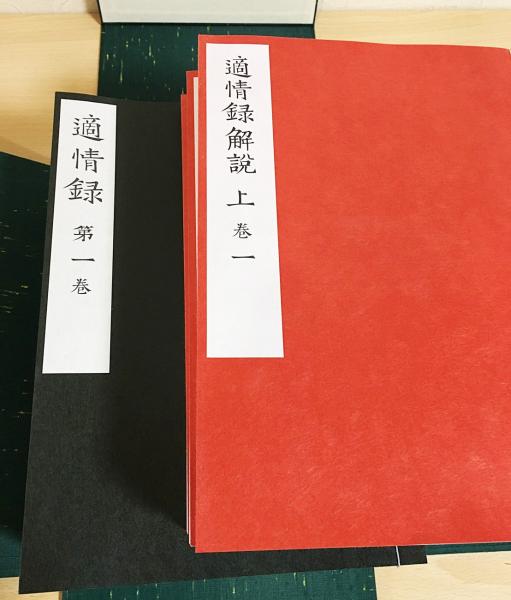 適情録解説 上 巻一
適情録 第一巻